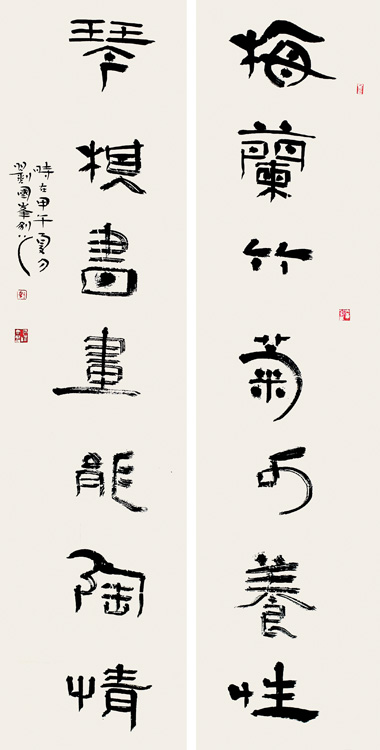 梅蘭竹菊可養性
琴棋書畫能陶情
時在甲午夏月
劉國峯